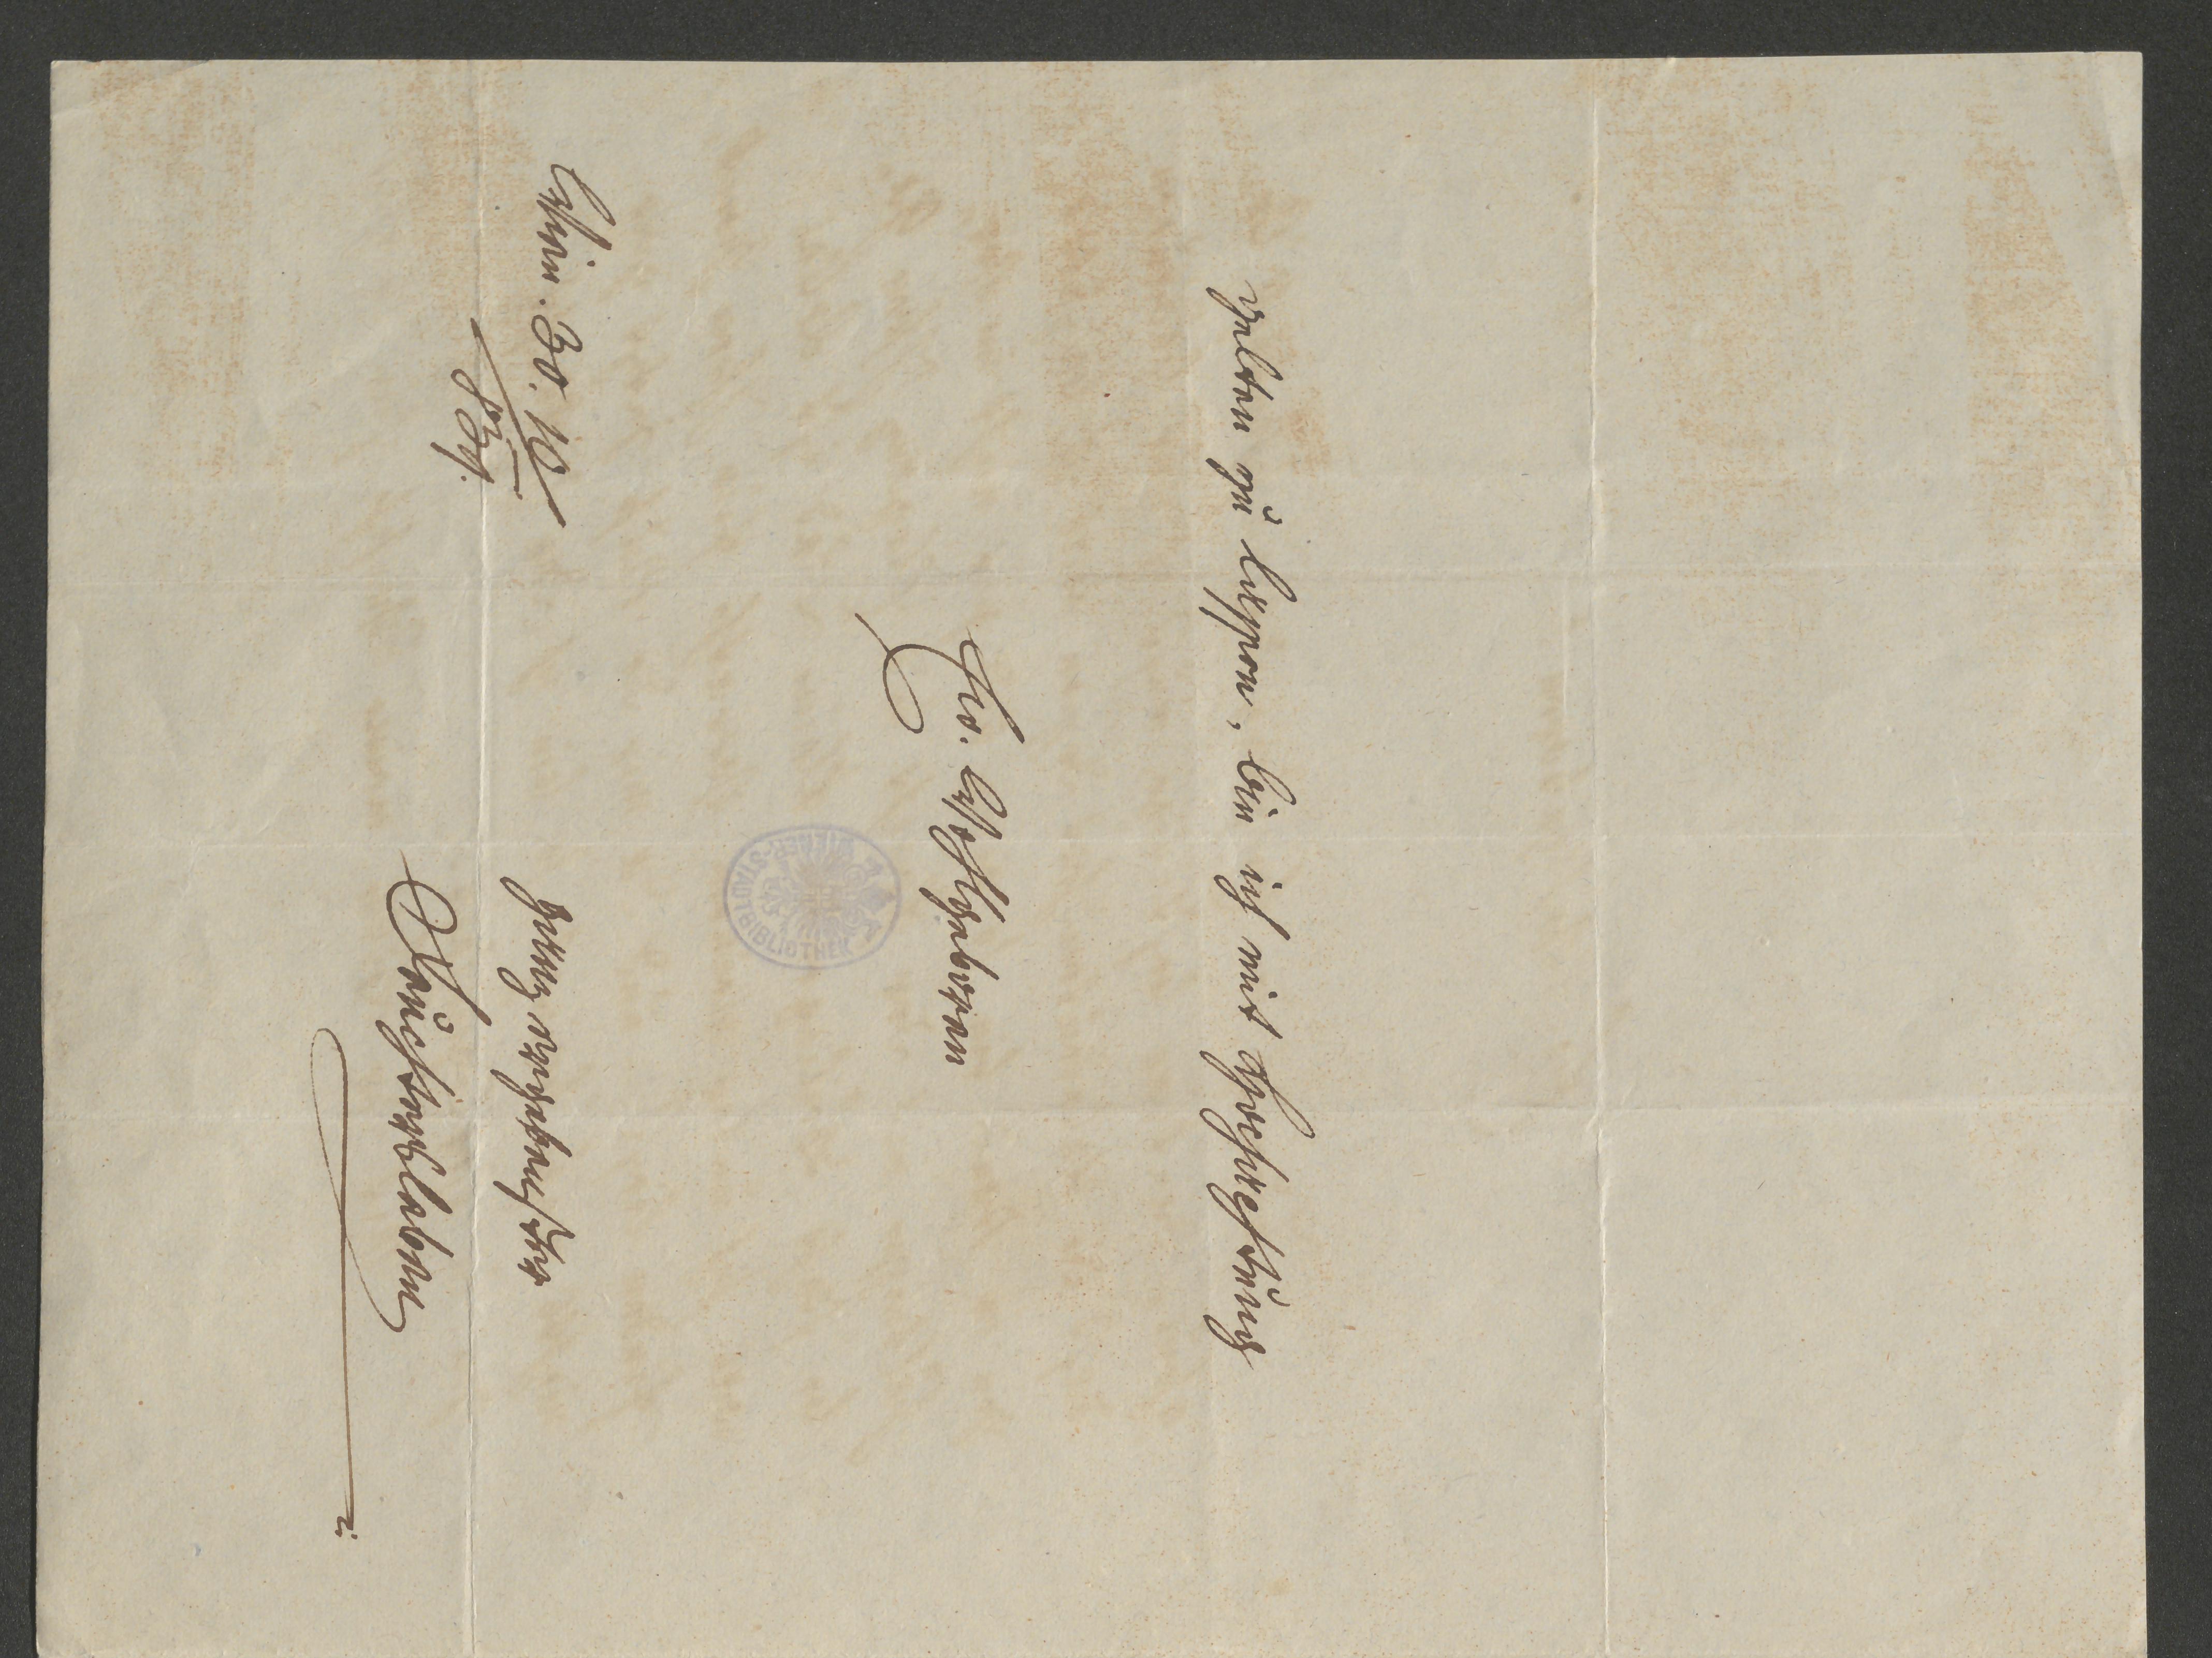 gelten zu lassen, bin ich mit Hochachtung
Ew. Wohlgeboren
WIENER-STADTBIBLIOTHEK
ganz ergebenster
Wien. 30. 10